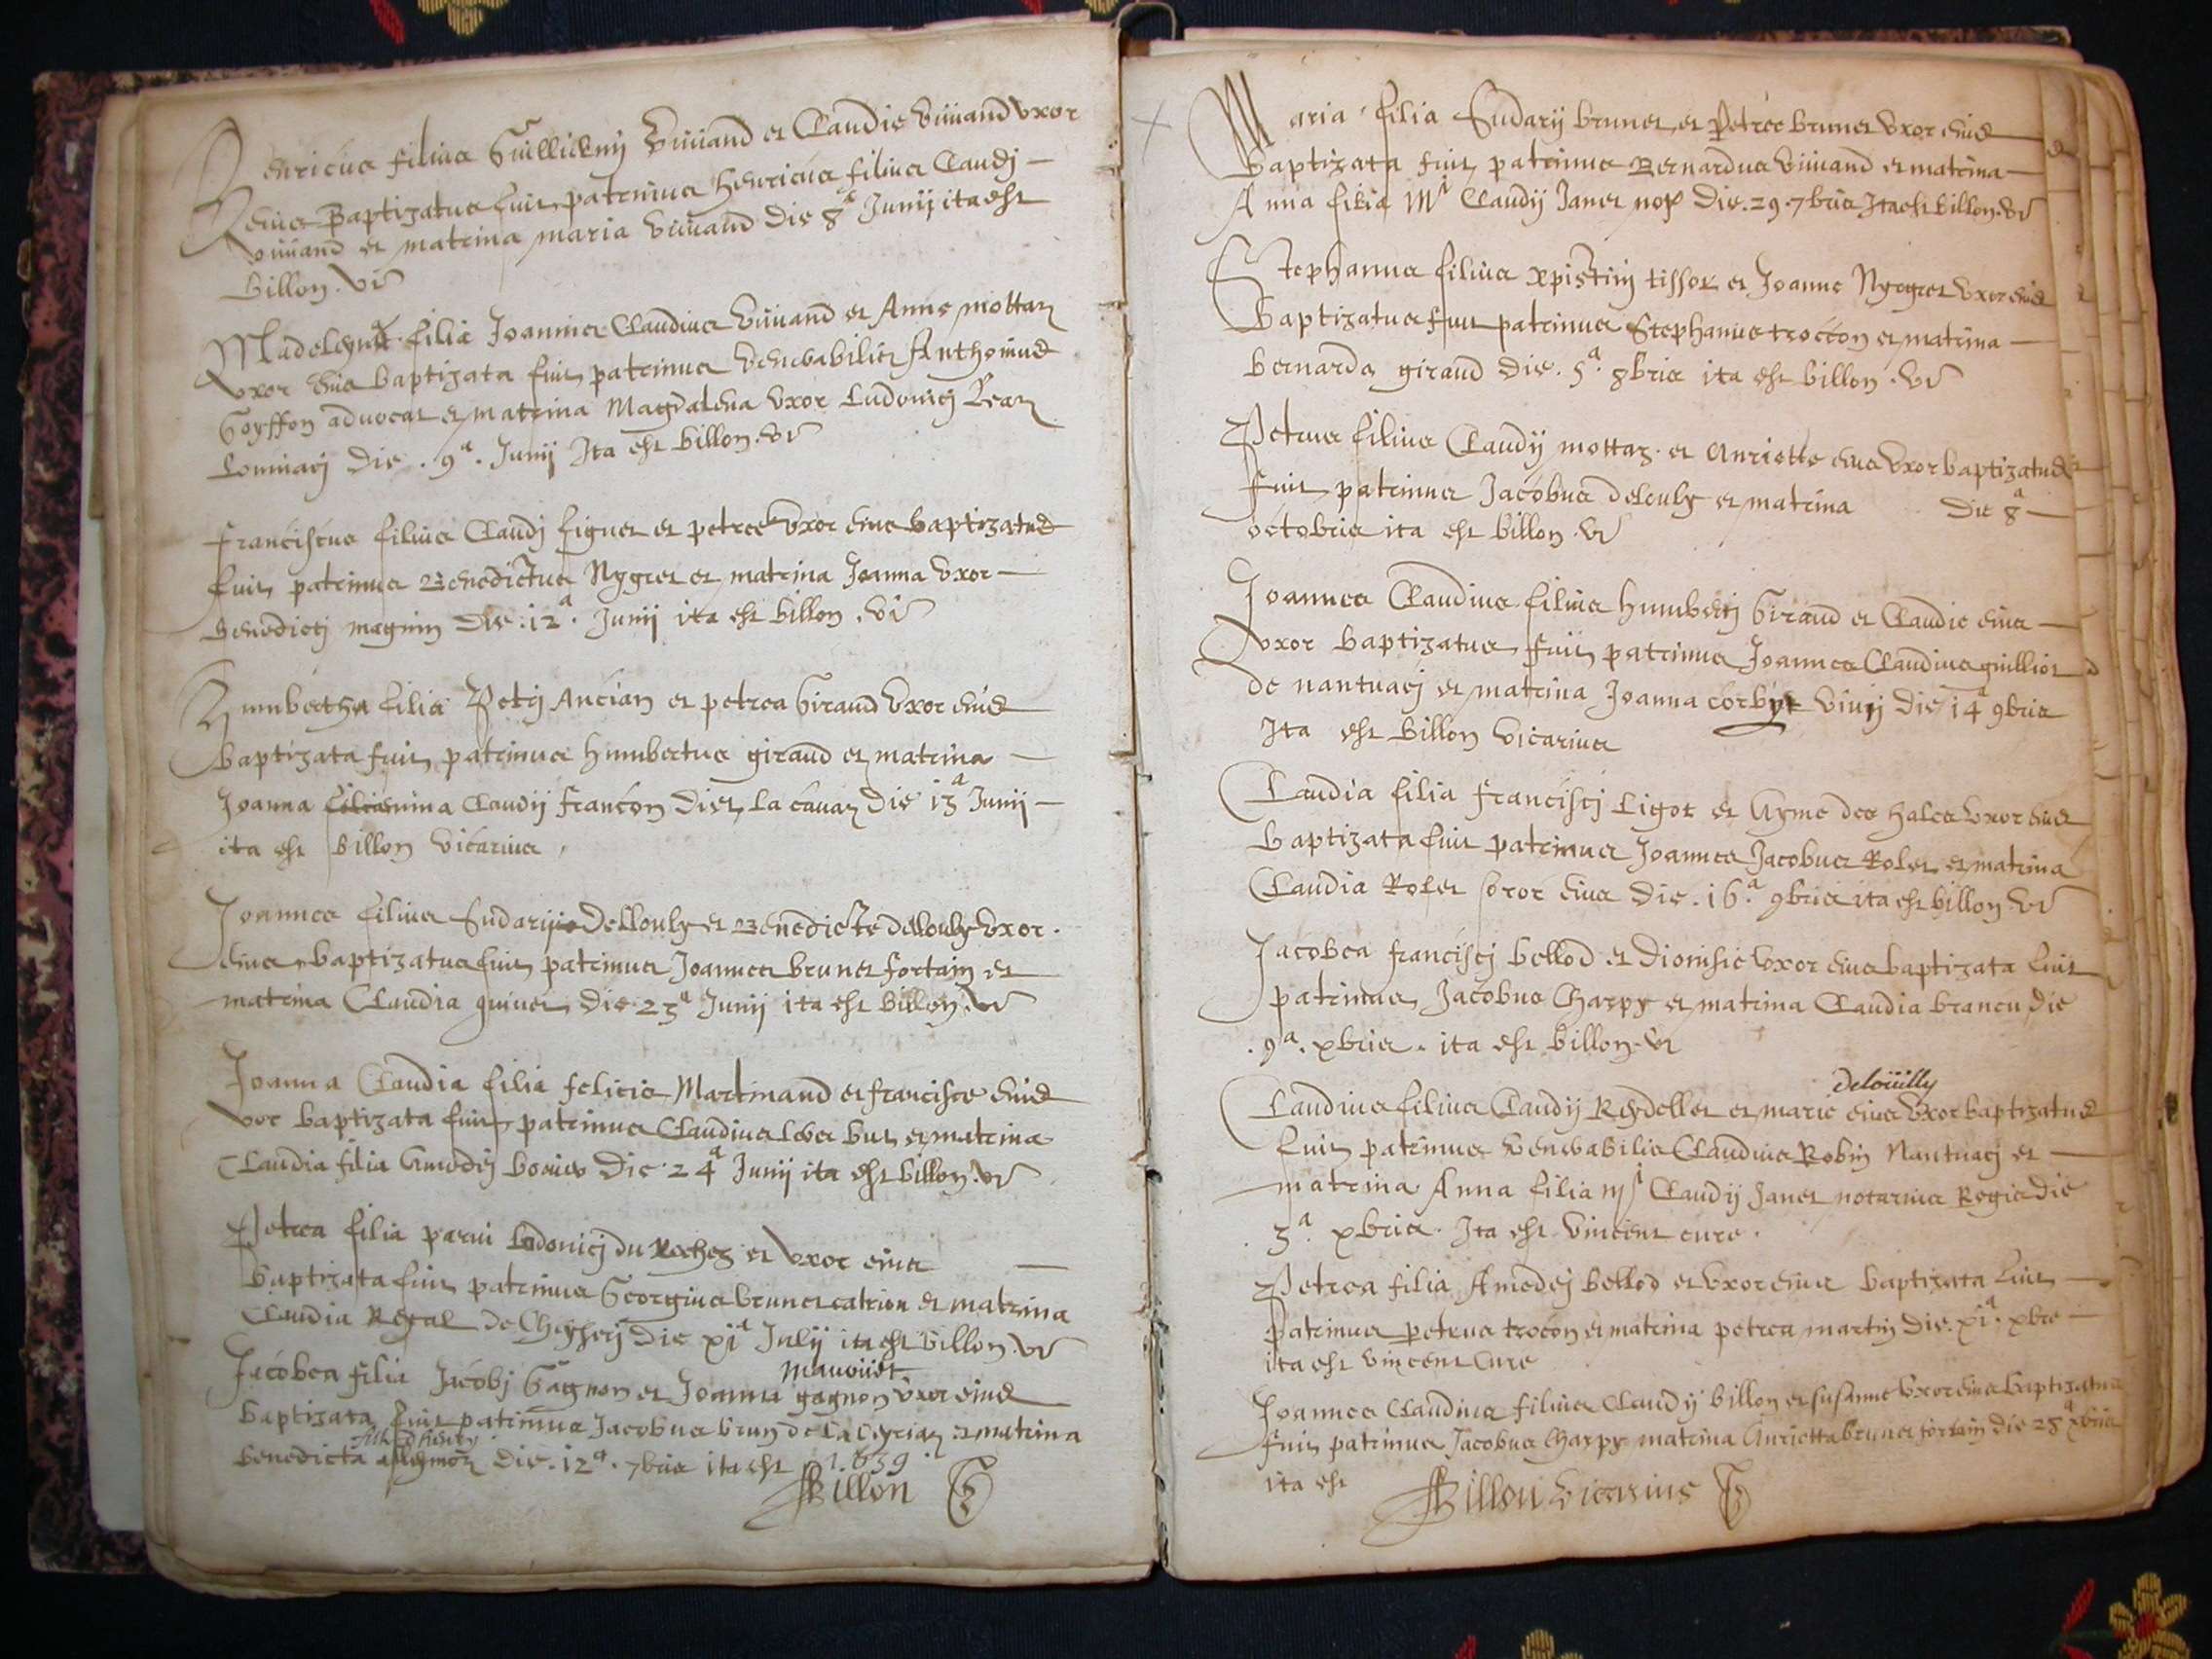 Henricus filius Guillielmj Vuiand et Claudie Vuiand uxor
eius Baptizatus fuit patrinus Henricus filius Claudj
Vuiand et matrina maria Vuiand die 8a Junij ita est
Billon vi
Madelena filia Joannes Claudius Vuiand et Anne mottaz
uxor eius baptizata fuit patrinus venerabilis Anthonius
Goyffon advocat et matrina Magdalena uxor Ludovicj
die . 9a . Junij Ita est billon vi
franciscus filius Claudj Ligner et petree uxor eius baptizatus
fuit patrinus Benedictus Nygrer et matrina Joanna uxor
Benedictj magnin die . 12a . Junij ita est billon . vi
Humberta filia Petrj Ancian et petrea Giraud uxor eius
baptizata fuit patrinus humbertus giraud et matrina
Joanna Claudij francon dict la cavaz die 13a Junij
ita est Billon vicarius
Joannes filius Sudarij Dellouly et Benedicte dellouly uxor
eius baptizatus fuit patrinus Joannes bruner fortain et
matrina Claudia die 23a Junij ita est billon vi
Joanna Claudia filia felicis Martinand et francisce eius
uxor baptizata fuit patrinus Claudius et matrina
Claudia filia Amedej die 24a Junij ita est billon vi
Petrea filia parvi Ludovicj du Rochez et uxor eius
baptizata fuit patrinus Georgius bruner catrion et matrina
Claudia Regal de die xja Julij ita est billon vi
mauviiet
Jacobea filia Jacobj Gagnon et Joanna gagnon uxor eius
baptizata fuit patrinus Jacobus brun de et matrina
Benedicta die . 12a . 7bris ita est 1.639
Billon
Maria filia Sudarij bruner et Petree bruner uxor eius
baptizata fuit patrinus Bernardus Vuiand et matrina
Anna filia Mri Claudij Janet die . 29 . 7bris Ita est billon . vi
Stephanus filius xpistinj tissot et Joanne Nygrer uxor eius
Baptizatus fuit patrinus Stephanus troccon et matrina
bernarda giraud die . 5a . 8bris ita est billon . vi
Petrus filius Claudij mottaz . et Anriette eius uxor baptizatus
fuit patrinus Jacobus delouly et matrina die 8a
octobris ita est billon . vi
Joannes Claudius filius humbertj Giraud et Claudie eius
uxor baptizatus fuit patrinus Joannes Claudius guilliot
de nantuacj et matrina Joanna die 14a 9bris
Ita est billon vicarius
Claudia filia franciscj Ligot et Ayme des hales uxor eius
baptizata fuit patrinus Joannes Jacobus Rolet et matrina
Claudia Rolet soror eius die . 16a . 9bris ita est billon vi
Jacobea franciscj bellod et Dionisie uxor eius baptizata fuit
patrinus Jacobus Charpy et matrina Claudia brancu die
. 9a . xbris . ita est billon . vi
deloüilly
Claudius filius Claudij Reydeller et marie eius uxor baptizatus
fuit patrinus venerabilis Claudius Robin Nantuacj et
matrina Anna filia mri Claudij Janet notarius Regis die
. 3a . xbris . Ita est vincent cure .
Petrea filia Amedej bellod et uxor eius baptizata fuit
patrinus petrus trocon et matrina petrea martin die . xja . xbre
ita est vincent Cure
Joannes Claudius filius Claudij billon et susanne uxor eius baptizatus
fuit patrinus Jacobus Charpy matrina Anrietta bruner fortain die 28a xbris
ita est
Billon Vicarius